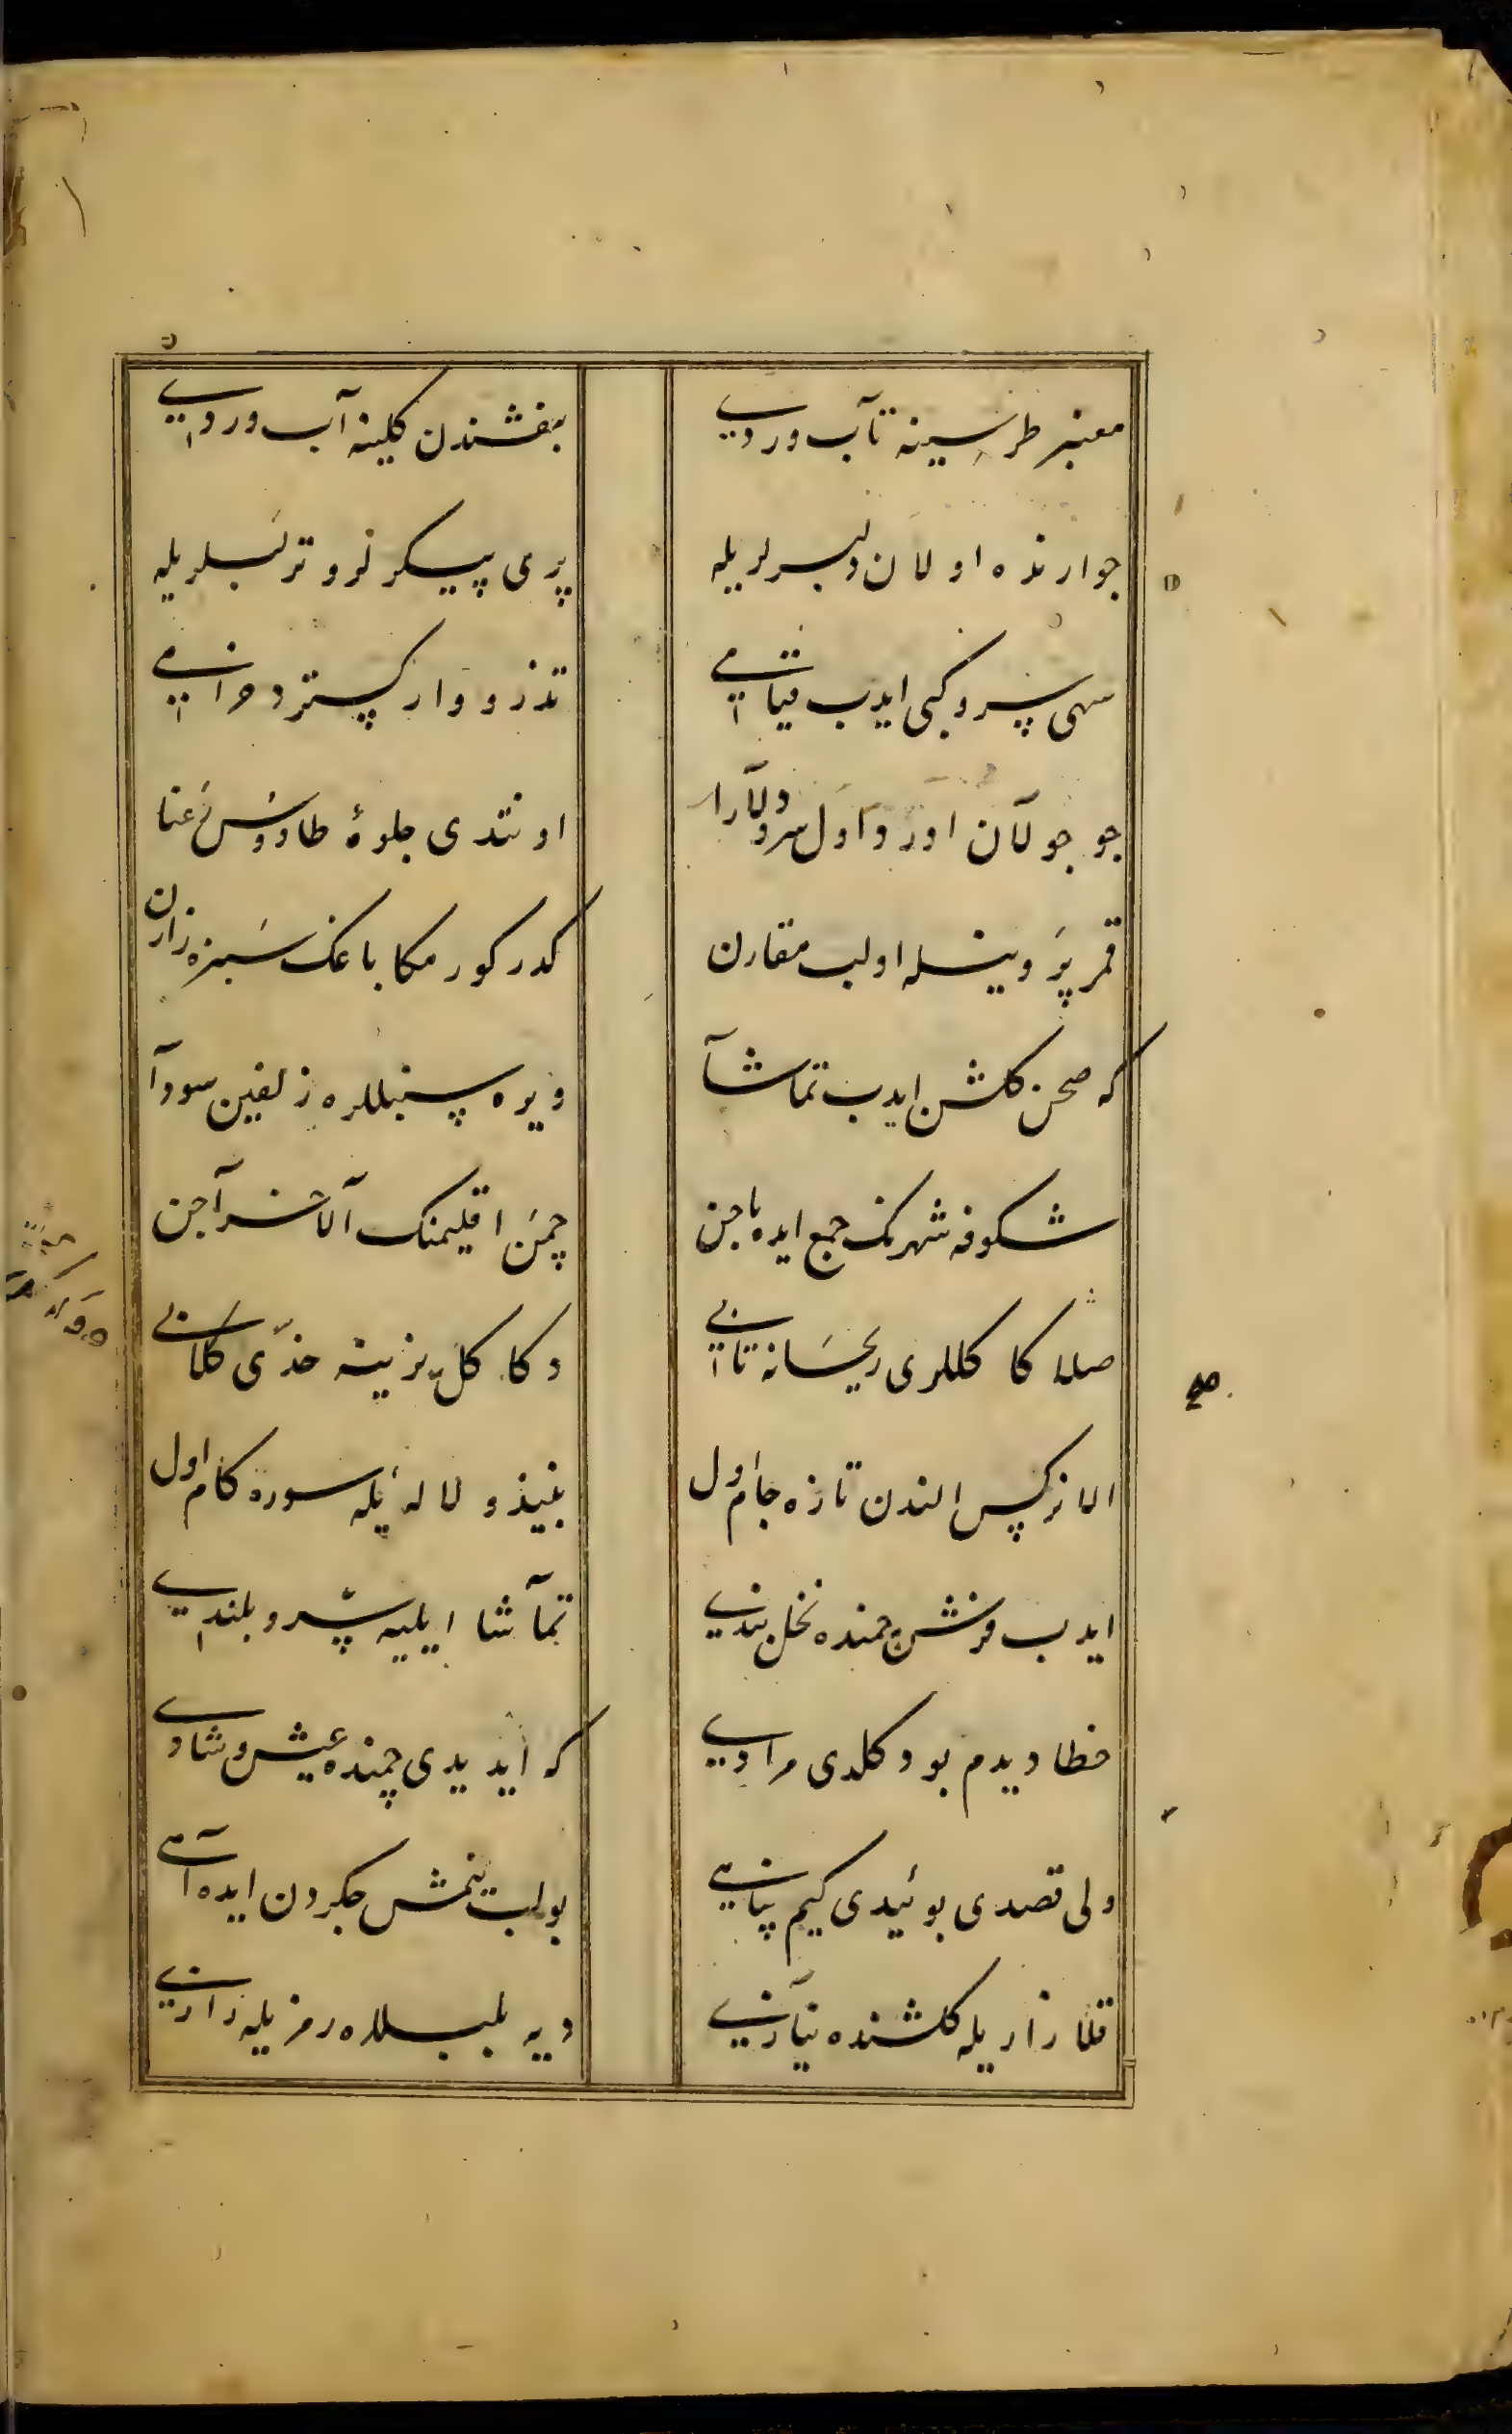 معنبر طره سینه تاب ویردی
بنفشندن کلینه آب ویردی
جوارنده اولان دلبرلریله
پری پیکرلر و تر لبلریله
سهی سرو کبی ایدب قیامی
تذرو وار کسترد خرامی
چو جولان اوردی اول سرو دلارا
اونتدی جلوهٔ طاووس رعنا
قمر پروینله اولب مقارن
کدر کورمکا باغک سبزه زارن
که صحن کلشن ایدب تماشا
ویره سنبللره زلفین سودا
شکوفه شهرنک جمع ایده باجن
چمن اقلیمنک آلا خراجن
صلا کا کللری ریحانه تابی
دکا کل یزینه خدی کلابی
الا نرکس الندن تازه جام اول
بنیذ و لاله یله سوره کام اول
ایدب فرشن چمنده نخل بندی
تماشا ایلیه سرو بلندی
خطا دیدم بو دکلدی مرادی
که ایدیدی چمنده عیش و شادی
ولی قصدی بوئیدی کیم پنامی
بولب ینمش جکردن ایده آمی
قلا زاریله کلشنده نیازی
دیه بلبللره رمزیله رازی